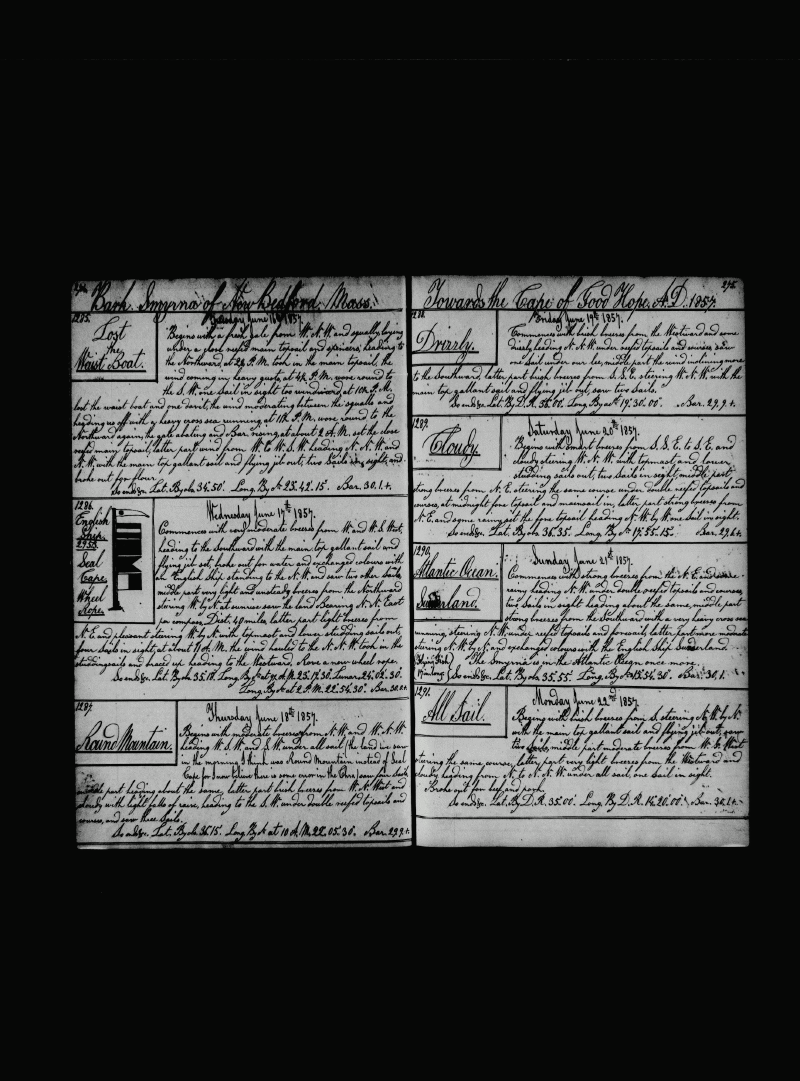 Bark Smyrna of New Bedford, Mass.
1285.
Lost
the
Waist Boat.
Tuesday June 16th 1857.
Begins with a fresh gale from W.N.W. and squally, laying
under a close reefed main topsail and spencer, heading to
the Northward, at 2½ P.M. took in the main topsail, the
wind coming in heavy gusts, at 4½ P.M. wore round to
the S.W. one Sail in sight too windward, at 10h P.M.
lost the waist boat and one davit, the wind moderating between the squalls and
heading us off with a heavy cross sea running, at 11h P.M. wore round to the
Northward again, the gale abating and Bar. rising, at about 2 A.M. set the close
reefed main topsail, latter part wind from W. to W.S.W. heading N.N.W. and
N.W. with the main top gallant sail and flying jib out, two Sails in sight, and
broke out for flour.
So ends &c. Lat. By ob. 34.50. Long. By Ar. 25.42.15. Bar. 30.1.+.
1286.
English
Ship.
Seal
Cape.
Wheel
Rope.
Wednesday June 17th 1857.
Commences with very moderate breezes from W. and W.S. West,
heading to the Southward with the main top gallant sail and
flying jib set, broke out for water and exchanged colours with
an English Ship standing to the N.W. and saw two other Sails,
middle part very light and unsteady breezes from the Northward
steering W. by N. at sunrise saw the land Bearing N.N. East
per compass, Dist. 40 miles, latter part light breezes from
N.E. and pleasant steering W. by N. with topmast and lower studding sails out,
four Sails in sight, at about 11 A.M. the wind hauled to the N.N.W. took in the
studdingsails and braced up heading to the Westward. Rove a new wheel rope.
So ends &c. Lat. By ob. 35.18. Long. By Ar. at 9 A.M. 23.17.30. Lunar. 24.02.30.
Long. By Ar. at 2 P.M. 22.54.30. Bar. 30.2.+.
1287.
Round Mountain.
Thursday June 18th 1857.
Begins with moderate breezes from N.W. and W.N.W.
heading W.S.W. and S.W. under all sail (the land we saw
in the morning I think was Round Mountain instead of Seal
Cape for I now believe there is some error in the Chro.) saw four Sails
middle part heading about the same, latter part brisk breezes from W.N. West and
cloudy with light falls of rain, heading to the S.W. under double reefed topsails and
courses, and saw three Sails.
So ends &c. Lat. By ob. 36.15. Long. By Ar. at 10 A.M. 22.05.30. Bar. 29.9.+.
275.
Towards the Cape of Good Hope, A.D. 1857.
1288.
Drizzly.
Friday June 19th 1857.
Commences with brisk breezes from the Westward and some
drizzly, heading N.N.W. under reefed topsails and courses, saw
one Sail under our lee, middle part the wind inclining more
to the Southward, latter part brisk breezes from S.S.E. steering W.N.W. with the
main top gallant sail and flying jib out, saw two Sails.
So ends &c. Lat. By D.R. 36.00. Long. By Ar. 19.30.00. Bar. 29.9.+.
1289.
Cloudy.
Saturday June 20th 1857.
Begins with Smart breezes from S.S.E. to S.E. and
cloudy, steering W.N.W. with topmast and lower
studding sails out, two Sails in sight, middle part
strong breezes from N.E. steering the same course under double reefed topsails and
courses, at midnight fore topsail and mainsail in, latter part strong breezes from
N.E. and some rainy set the fore topsail heading N.W. by W. one Sail in sight.
So ends &c. Lat. By ob. 36.35. Long. By Ar. 17.55.15. Bar. 29.6.+.
1290.
Atlantic Ocean.
Sunderland.
Sunday June 21st 1857.
Commences with strong breezes from the N.E. and some
rainy heading N.W. under double reefed topsails and courses,
two Sails in sight heading about the same, middle part
strong breezes from the Southward with a very heavy cross sea
running, steering N.W. under reefed topsails and foresail, latter part more moderate
steering N.W. by N. and exchanged colours with the English Ship Sunderland.
The Smyrna is in the Atlantic Ocean once more.
So ends &c. Lat. By ob. 35.55. Long. By Ar. 15.54.30. Bar. 30.1.
1291.
All Sail.
Monday June 22nd 1857.
Begins with brisk breezes from S. steering N.W. by N.
with the main top gallant sail and flying jib out, saw
two Sails, middle part moderate breezes from W.S. West
steering the same course, latter part very light breezes from the Westward and
cloudy heading from N. to N.N.W. under all sail, one Sail in sight.
Broke out for beef and pork.
So ends &c. Lat. By D.R. 35.00. Long. By D.R. 15.20.00. Bar. 30.1.+.